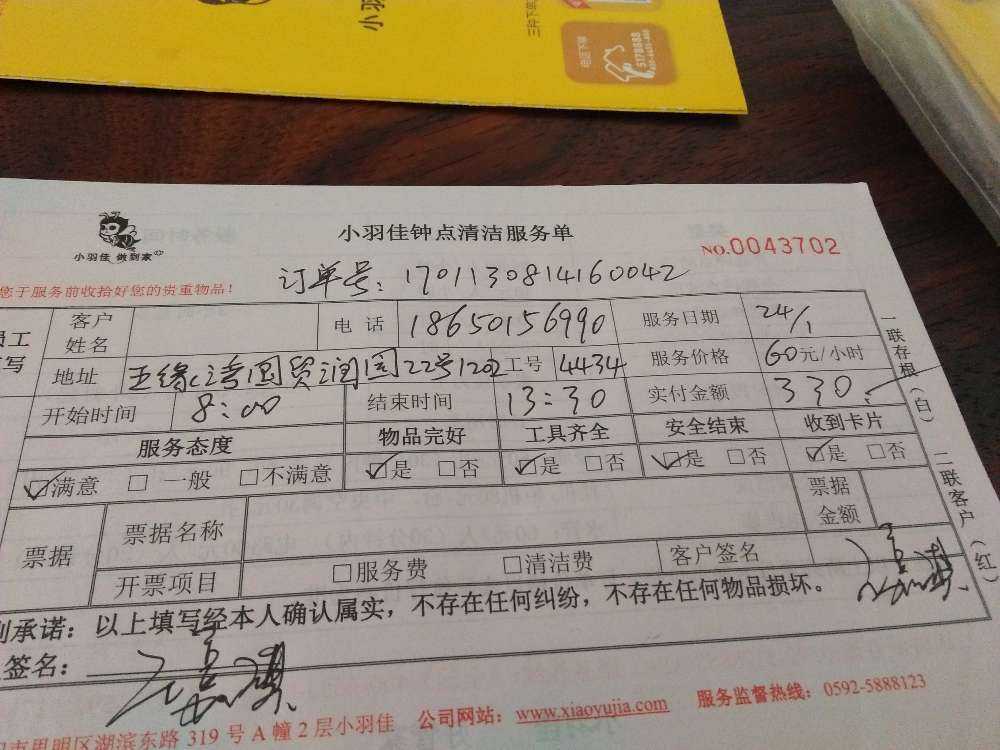 小羽
三种下单
电话下单
5178888
小羽佳 做到家
小羽佳钟点清洁服务单
NO.0043702
您于服务前收拾好您的贵重物品!
订单号: 1701130814160042
客户姓名
电 话 18650156990
服务日期 24/1
地址 五缘湾国贸润园22号1202
工号 4434
服务价格 60元/小时
开始时间 8:00
结束时间 13:30
实付金额 330.
服务态度 物品完好 工具齐全 安全结束 收到卡片
☑满意 □ 一般 □不满意 ☑是 □否 ☑是 □否 ☑是 □否 ☑是 □否
票据 票据名称 票据金额
开票项目 □服务费 □清洁费 客户签名
承诺:以上填写经本人确认属实,不存在任何纠纷,不存在任何物品损坏。
签名:
思明区湖滨东路 319 号 A 幢 2 层小羽佳 公司网站:www.xiaoyujia.com 服务监督热线:0592-5888123
一联存根(白) 二联客户(红)